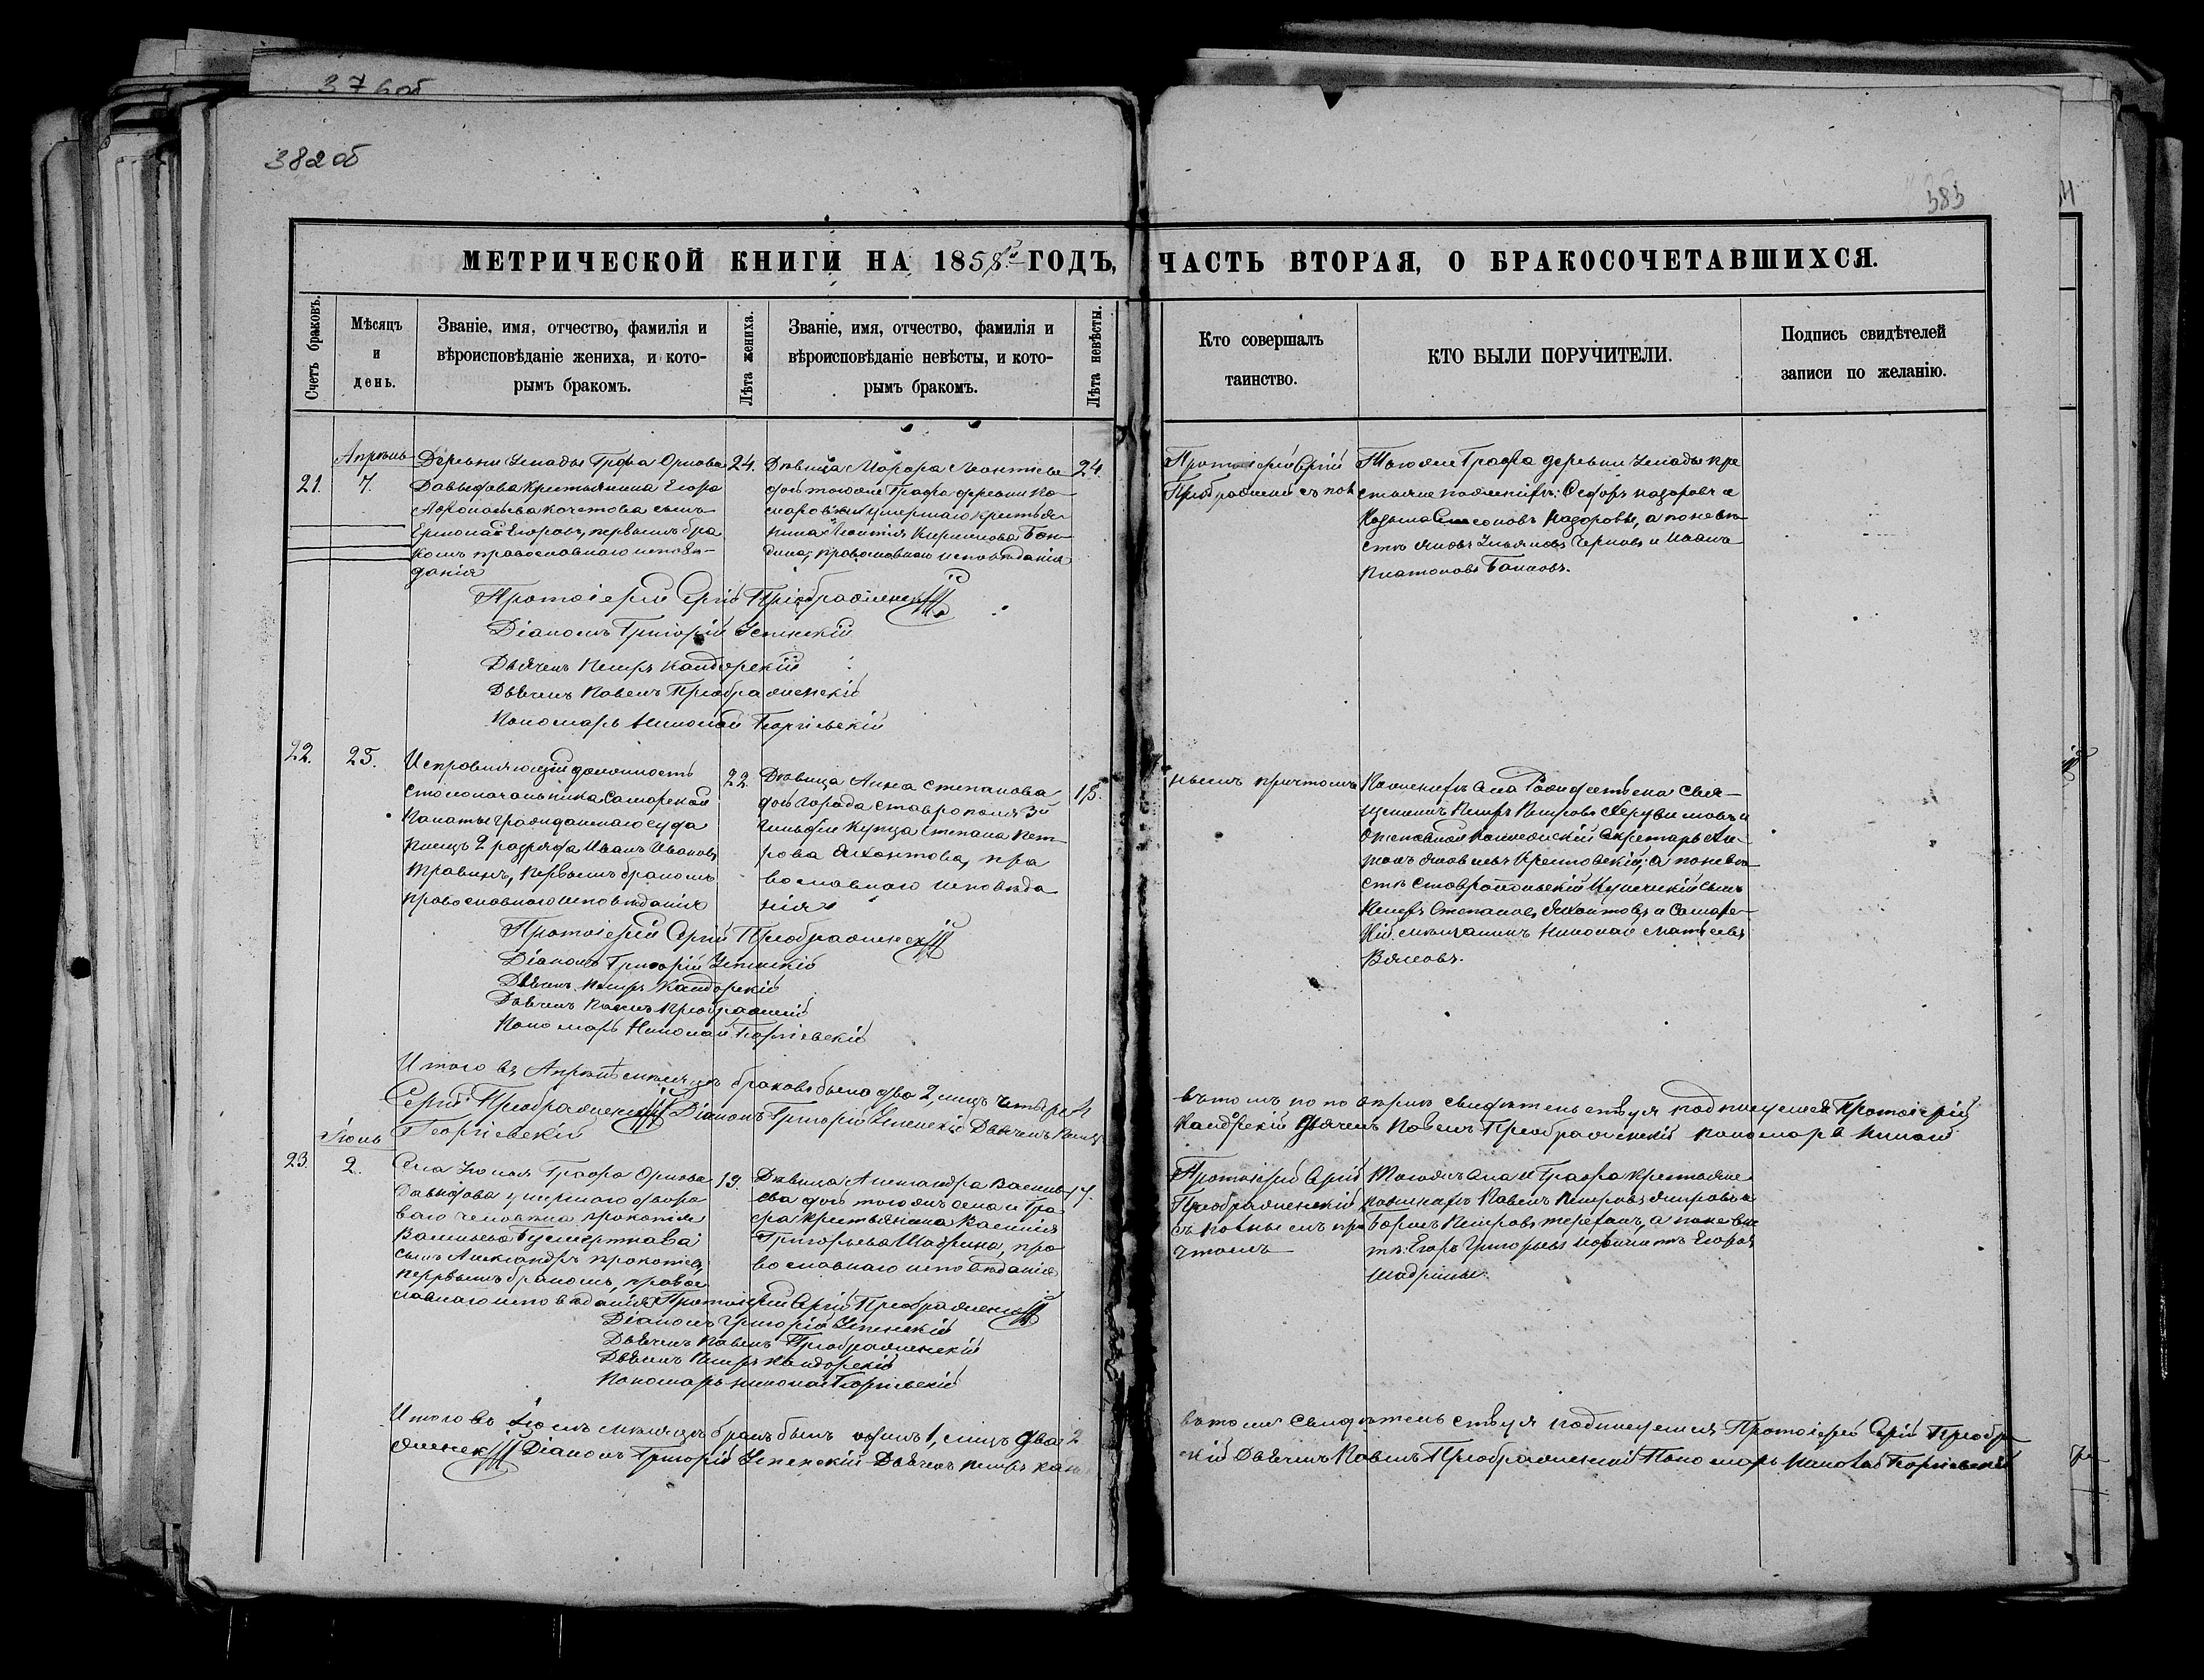 376об
382об
383
МЕТРИЧЕСКОЙ КНИГИ НА 1858й ГОДЪ, ЧАСТЬ ВТОРАЯ, О БРАКОСОЧЕТАВШИХСЯ.
Счетъ браковъ.
Мѣсяцъ
и
день.
Званіе, имя, отчество, фамилія и
вѣроисповѣданіе жениха, и кото-
рымъ бракомъ.
Лѣта жениха.
Званіе, имя, отчество, фамилія и
вѣроисповѣданіе невѣсты, и кото-
рымъ бракомъ.
Лѣта невѣсты.
Кто совершалъ
таинство.
КТО БЫЛИ ПОРУЧИТЕЛИ.
Подпись свидѣтелей
записи по желанію.
21.
Апрѣль
7.
Деревни Графа Орлова
Давыдова крестьянина Егора
сынъ
Егоровъ, первымъ бра
комъ православнаго исповѣ-
данія
24.
Дѣвица Леонтьева
дочь тогоже Графа деревни Ко-
умершаго крестья-
нина Леонтія Кирилова
православнаго исповѣданія
24.
Протоіерей Сергій
Преображенскій съ пол
Тогоже Графа деревни кре
стьяне по женихѣ: Федоръ Назоровъ и
Козьма Назоровы, а по невѣ
стѣ Яковъ Ульяновъ Черновъ и Иванъ
Платоновъ
Протоіерей Сергій Преображенскій
Діаконъ Григорій Успенскій
Дьячекъ Петръ Кандорскій
Дьячекъ Павелъ Преображенскій
Пономарь Николай Георгіевскій
22.
25.
Исправляющій должность
Столоначальника Самарской
Палаты гражданскаго суда
Писецъ 2 разряда Иванъ Ивановъ
Травинъ, первымъ бракомъ
православнаго исповѣданія
22.
Дѣвица Анна Степанова
дочь города Ставрополя 3й
гильдіи Купца Степана Пет
рова Яхонтова, пра
вославнаго исповѣда
нія
18.
нымъ причтомъ
По женихѣ села Рождествена Свя-
щенникъ Петръ Петровъ Херувимовъ и
Секретарь Ан-
Яковлевъ Крестовскій; а по невѣ
стѣ Ставропольскій Купеческій сынъ
Петръ Степановъ Яхонтовъ и Самарс-
кій мѣщанинъ Николай Матвѣевъ
Протоіерей Сергій Преображенскій
Діаконъ Григорій Успенскій
Дьячекъ Петръ Кандорскій
Дьячекъ Павелъ Преображенскій
Пономарь Николай Георгіевскій
Итого въ Апрѣлѣ мѣсяцѣ браковъ было два 2, лицъ четыре 4
въ томъ свидѣтельствуя подписуемся Протоіерей
Сергій Преображенскій Діаконъ Григорій Успенскій Дьячекъ Петръ
Кандорскій Дьячекъ Павелъ Преображенскій пономарь Николай
Георгіевскій
Іюнь
23.
2.
Села Усолья Графа Орлова
Давыдова умершаго дворо
ваго человѣка Прокопія
Васильева
сынъ Александръ Прокопіевъ,
первымъ бракомъ, право
славнаго исповѣданія
19.
Дѣвица Александра Василь
ева дочь тогожъ села и Гра
фа крестьянина Василія
Григорьева Шадрина, пра
вославнаго исповѣданія
17.
Протоіерей Сергій
Преображенскій
съ полнымъ при
чтомъ
Тогожъ села и Графа крестьяне
по женихѣ Павелъ Петровъ и
Петровъ а по невѣс
тѣ: Егоръ Григорьевъ Егоровъ
Шадрины.
Протоіерей Сергій Преображенскій
Діаконъ Григорій Успенскій
Дьячекъ Павелъ Преображенскій
Дьячекъ Петръ Кандорскій
Пономарь Николай Георгіевскій
Итого въ Іюнѣ мѣсяцѣ бракъ былъ одинъ 1, лицъ два 2
въ томъ свидѣтельствуя подписуемся Протоіерей Сергій Преобра
женскій Діаконъ Григорій Успенскій Дьячекъ Петръ Кандор
скій Дьячекъ Павелъ Преображенскій Пономарь Николай Георгіевскій